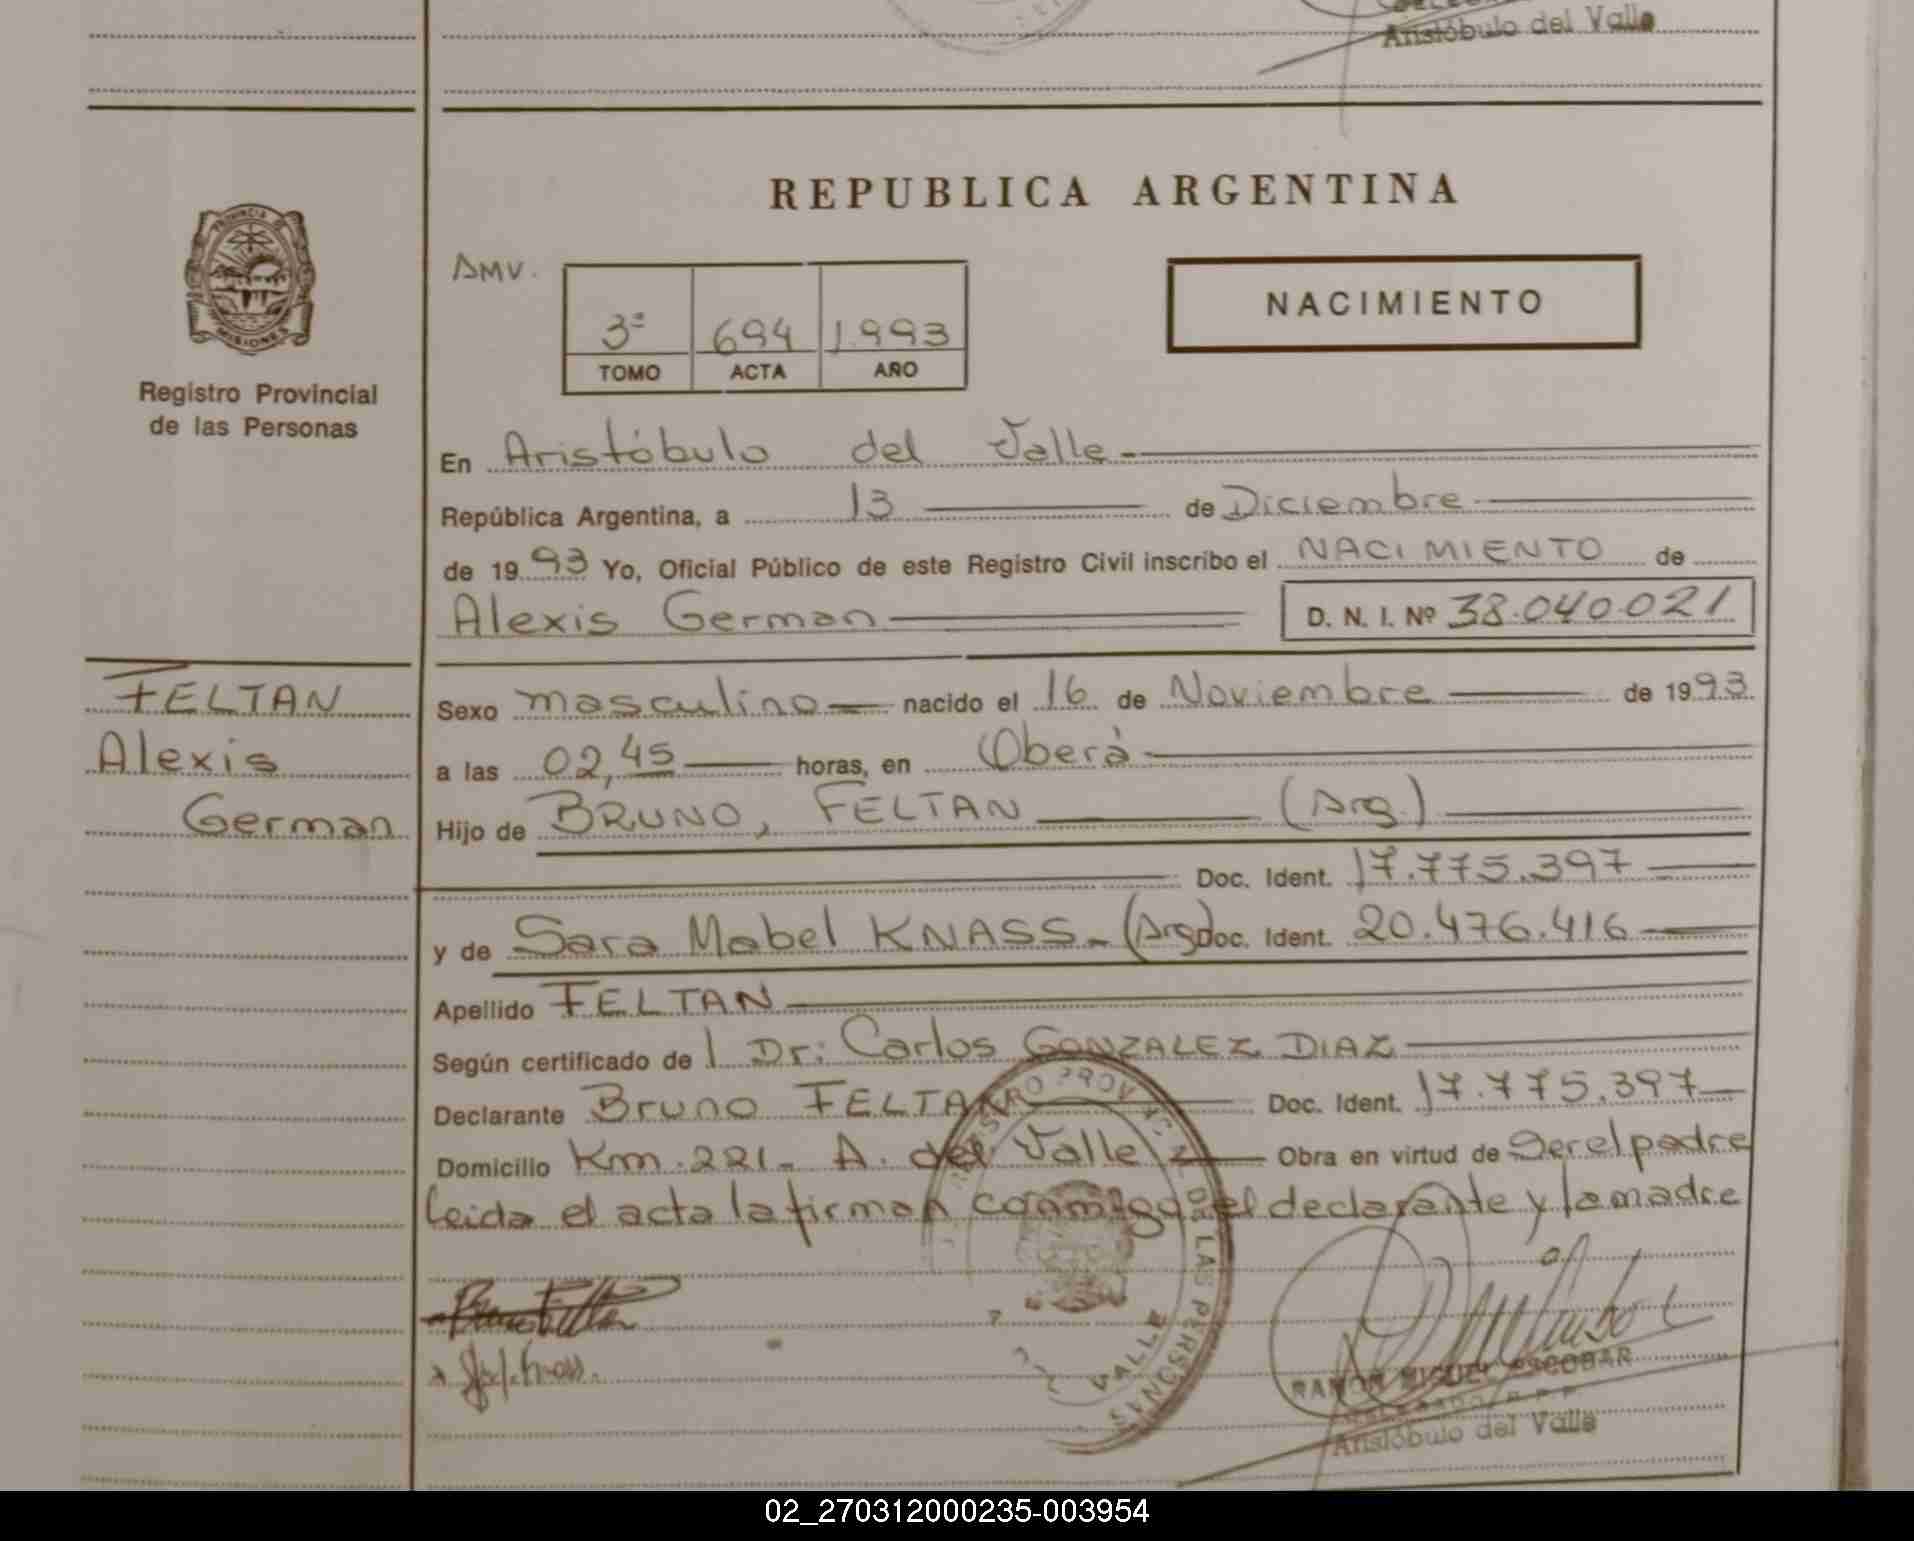 Aristóbulo del Valle
REPUBLICA ARGENTINA
PROVINCIA DE
MISIONES
Registro Provincial
de las Personas
AMV.
3º 694 1.993
TOMO ACTA AÑO
NACIMIENTO
En Aristóbulo del Valle
República Argentina, a 13 de Diciembre
de 1993 Yo, Oficial Público de este Registro Civil inscribo el NACIMIENTO de
Alexis German D. N. I. Nº 38.040.021
FELTAN
Alexis
German
Sexo masculino nacido el 16 de Noviembre de 1993
a las 02,45 horas, en Oberá
Hijo de BRUNO, FELTAN (Arg.)
Doc. Ident. 17.775.397
y de Sara Mabel KNASS - (Arg) Doc. Ident. 20.476.416
Apellido FELTAN
Según certificado de l Dr: Carlos GONZALEZ DIAZ
Declarante Bruno FELTAN Doc. Ident. 17.775.397
Domicilio Km. 221 - A. del Valle Obra en virtud de Ser el padre
Leida el acta la firman conmigo el declarante y la madre
VALLE
RAMON MIGUEL ESCOBAR
DELEGADO R.P.P.
Aristóbulo del Valle
02_270312000235-003954